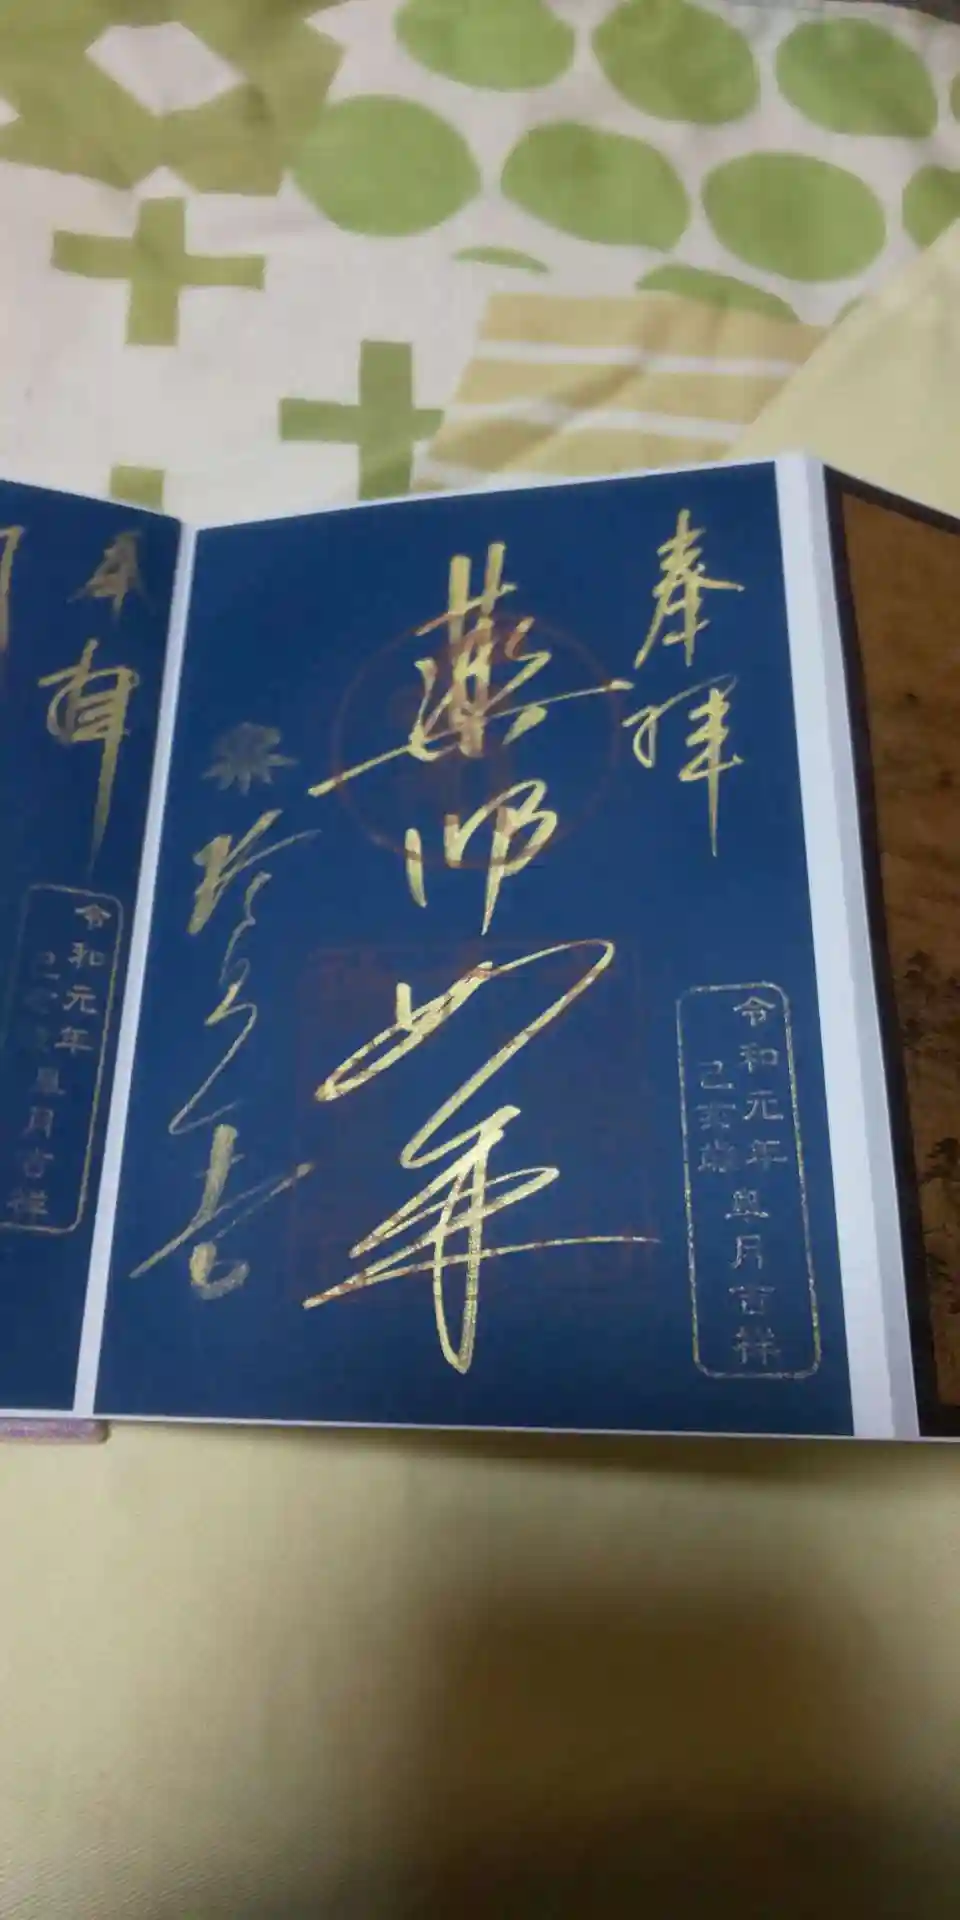 奉拝
令和元年
己亥歳皐月吉祥
薬師如来
珍皇寺
奉拝
令和元年
皐月吉祥